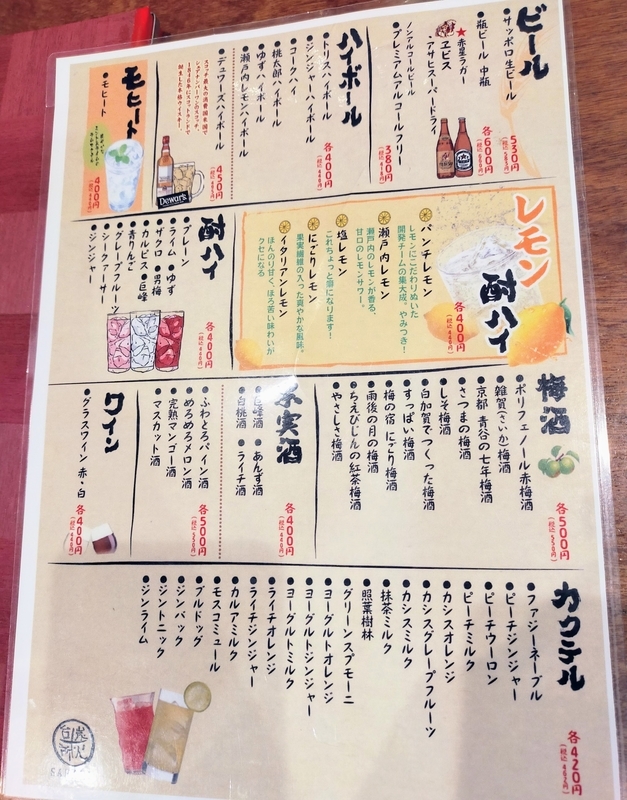 ビール
●サッポロ生ビール
530円
(税込583円)
●瓶ビール 中瓶
★赤星ラガー
ヱビス
・アサヒスーパードライ
各600円
(税込660円)
ノンアルコールビール
●プレミアムアルコールフリー
380円
(税込418円)
ハイボール
●トリスハイボール
●ジンジャーハイボール
●コークハイ
●桃太郎ハイボール
●ゆずハイボール
●瀬戸内レモンハイボール
各400円
(税込440円)
●デュワーズハイボール
450円
Dewar's
モヒート
●モヒート
400円
(税込440円)
レモン酎ハイ
各400円
(税込440円)
●パンチレモン
レモンにこだわりぬいた
開発チームの集大成。やみつき!
●瀬戸内レモン
瀬戸内のレモンが香る、
甘口のレモンサワー。
●塩レモン
これちょっと癖になります!
●にごりレモン
果実繊維の入った爽やかな風味。
●イタリアンレモン
ほんのり甘く、ほろ苦い味わいが
クセになる
酎ハイ
●プレーン
●ライム ●ゆず
●ザクロ ●男梅
●カルピス ●巨峰
●青りんご
●グレープフルーツ
●シークァーサー
●ジンジャー
各400円
(税込440円)
梅酒
●ポリフェノール赤梅酒
●雑賀(さいか)梅酒
●京都 青谷の七年梅酒
●さつまの梅酒
●しそ梅酒
●白加賀でつくった梅酒
●すっぱい梅酒
●梅の宿 にごり梅酒
●雨後の月の梅酒
●ちえびじんの紅茶梅酒
●やさしさ梅酒
各500円
(税込550円)
果実酒
●巨峰酒 ●あんず酒
●白桃酒 ●ライチ酒
各400円
(税込440円)
●ふわとろパイン酒
●めろめろメロン酒
●完熟マンゴー酒
●マスカット酒
各500円
(税込550円)
ワイン
●グラスワイン 赤・白
各400円
(税込440円)
カクテル
●ファジーネーブル
●ピーチジンジャー
●ピーチウーロン
●ピーチミルク
●カシスオレンジ
●カシスグレープフルーツ
●カシスミルク
●抹茶ミルク
●照葉樹林
●グリーンスプモーニ
●ヨーグルトオレンジ
●ヨーグルトジンジャー
●ヨーグルトミルク
●ライチオレンジ
●ライチジンジャー
●カルアミルク
●モスコミュール
●ブルドッグ
●ジンバック
●ジントニック
●ジンライム
各420円
(税込462円)